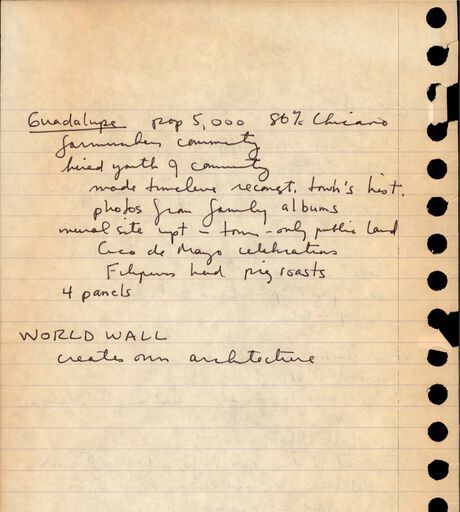 Guadalupe pop 5,000 80% Chicano
farmworkers community
hired youth of community
made timeline reconst. town's hist.
photos from family albums
mural site impt - town - only public land
Cinco de Mayo celebrations
Filipinos had pig roasts
4 panels
WORLD WALL
creates own architecture